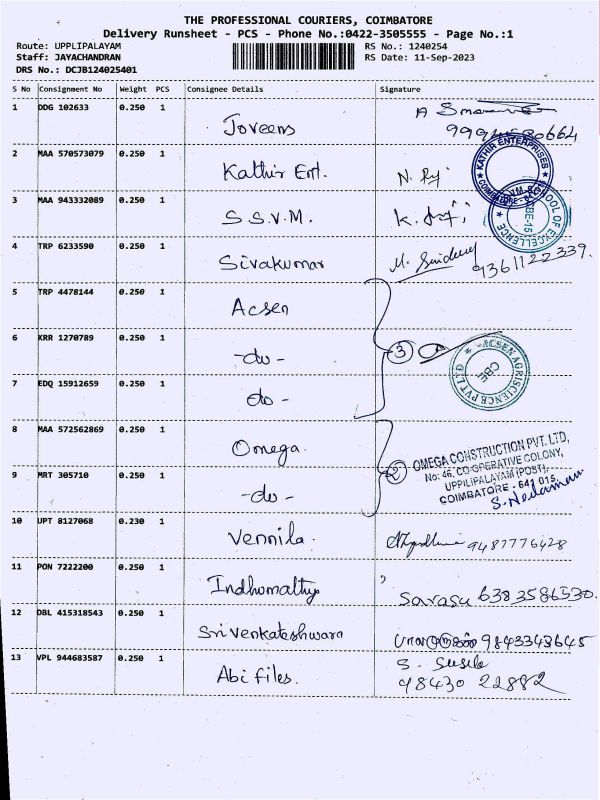 THE PROFESSIONAL COURIERS, COIMBATORE
Delivery Runsheet - PCS - Phone No.:0422-3505555 - Page No.:1
Route: UPPLIPALAYAM RS No.: 1240254
Staff: JAYACHANDRAN RS Date: 11-Sep-2023
DRS No.: DCJB124025401
S No Consignment No Weight PCS Consignee Details Signature
1 DDG 102633 0.250 1 Joveens A
2 MAA 570573079 0.250 1 Kathir Ent. N. Rj
KATHIR ENTERPRISES
COIMBATORE
3 MAA 943332089 0.250 1 S.S.V.M. K.
SCHOOL OF EXCELLENCE
CBE-15
4 TRP 6233590 0.250 1 Sivakumar M. 9361122339.
5 TRP 4478144 0.250 1 Acsen
6 KRR 1270789 0.250 1 -do- 3
ACSEN AGRISCIENCE PVT LTD
CBE
7 EDQ 15912659 0.250 1 do -
8 MAA 572562869 0.250 1 Omega
OMEGA CONSTRUCTION PVT. LTD,
No: 46, CO-OPERATIVE COLONY,
UPPILIPALAYAM (POST),
COIMBATORE - 641 015.
9 MRT 305710 0.250 1 -do- 2
10 UPT 8127068 0.230 1 Vennila. 9487776428
11 PON 7222200 0.250 1 Indhumathy Sarasu 6383586530.
12 DBL 415318543 0.250 1 Sri Venkateshwara 9843343645
13 VPL 944683587 0.250 1 Abi files. S. Susila
98430 22882